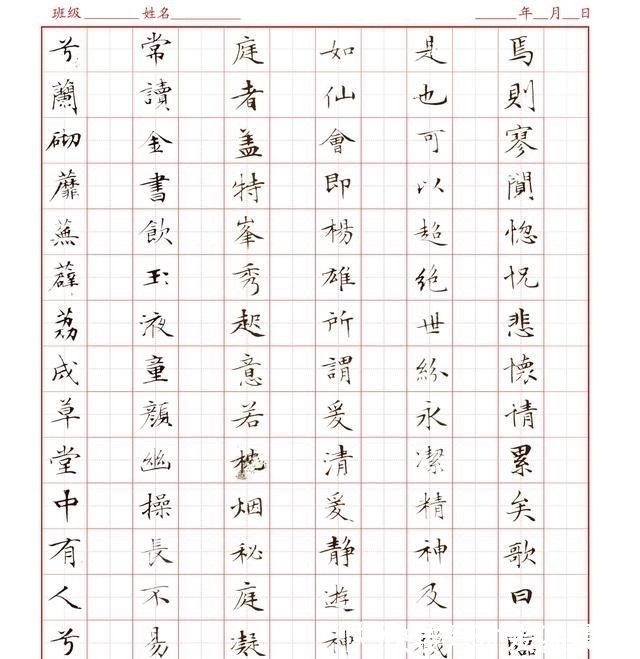 班級 姓名 年 月 日
焉則寥闃惚怳悲懷情累矣歌曰臨
是也可以超絕世紛永潔精神及機
如仙會即楊雄所謂爰清爰靜遊神
庭者盖特峯秀起意若枕烟秘庭凝
常讀金書飲玉液童顏幽操長不易
兮蘭砌蘼蕪薜荔成草堂中有人兮